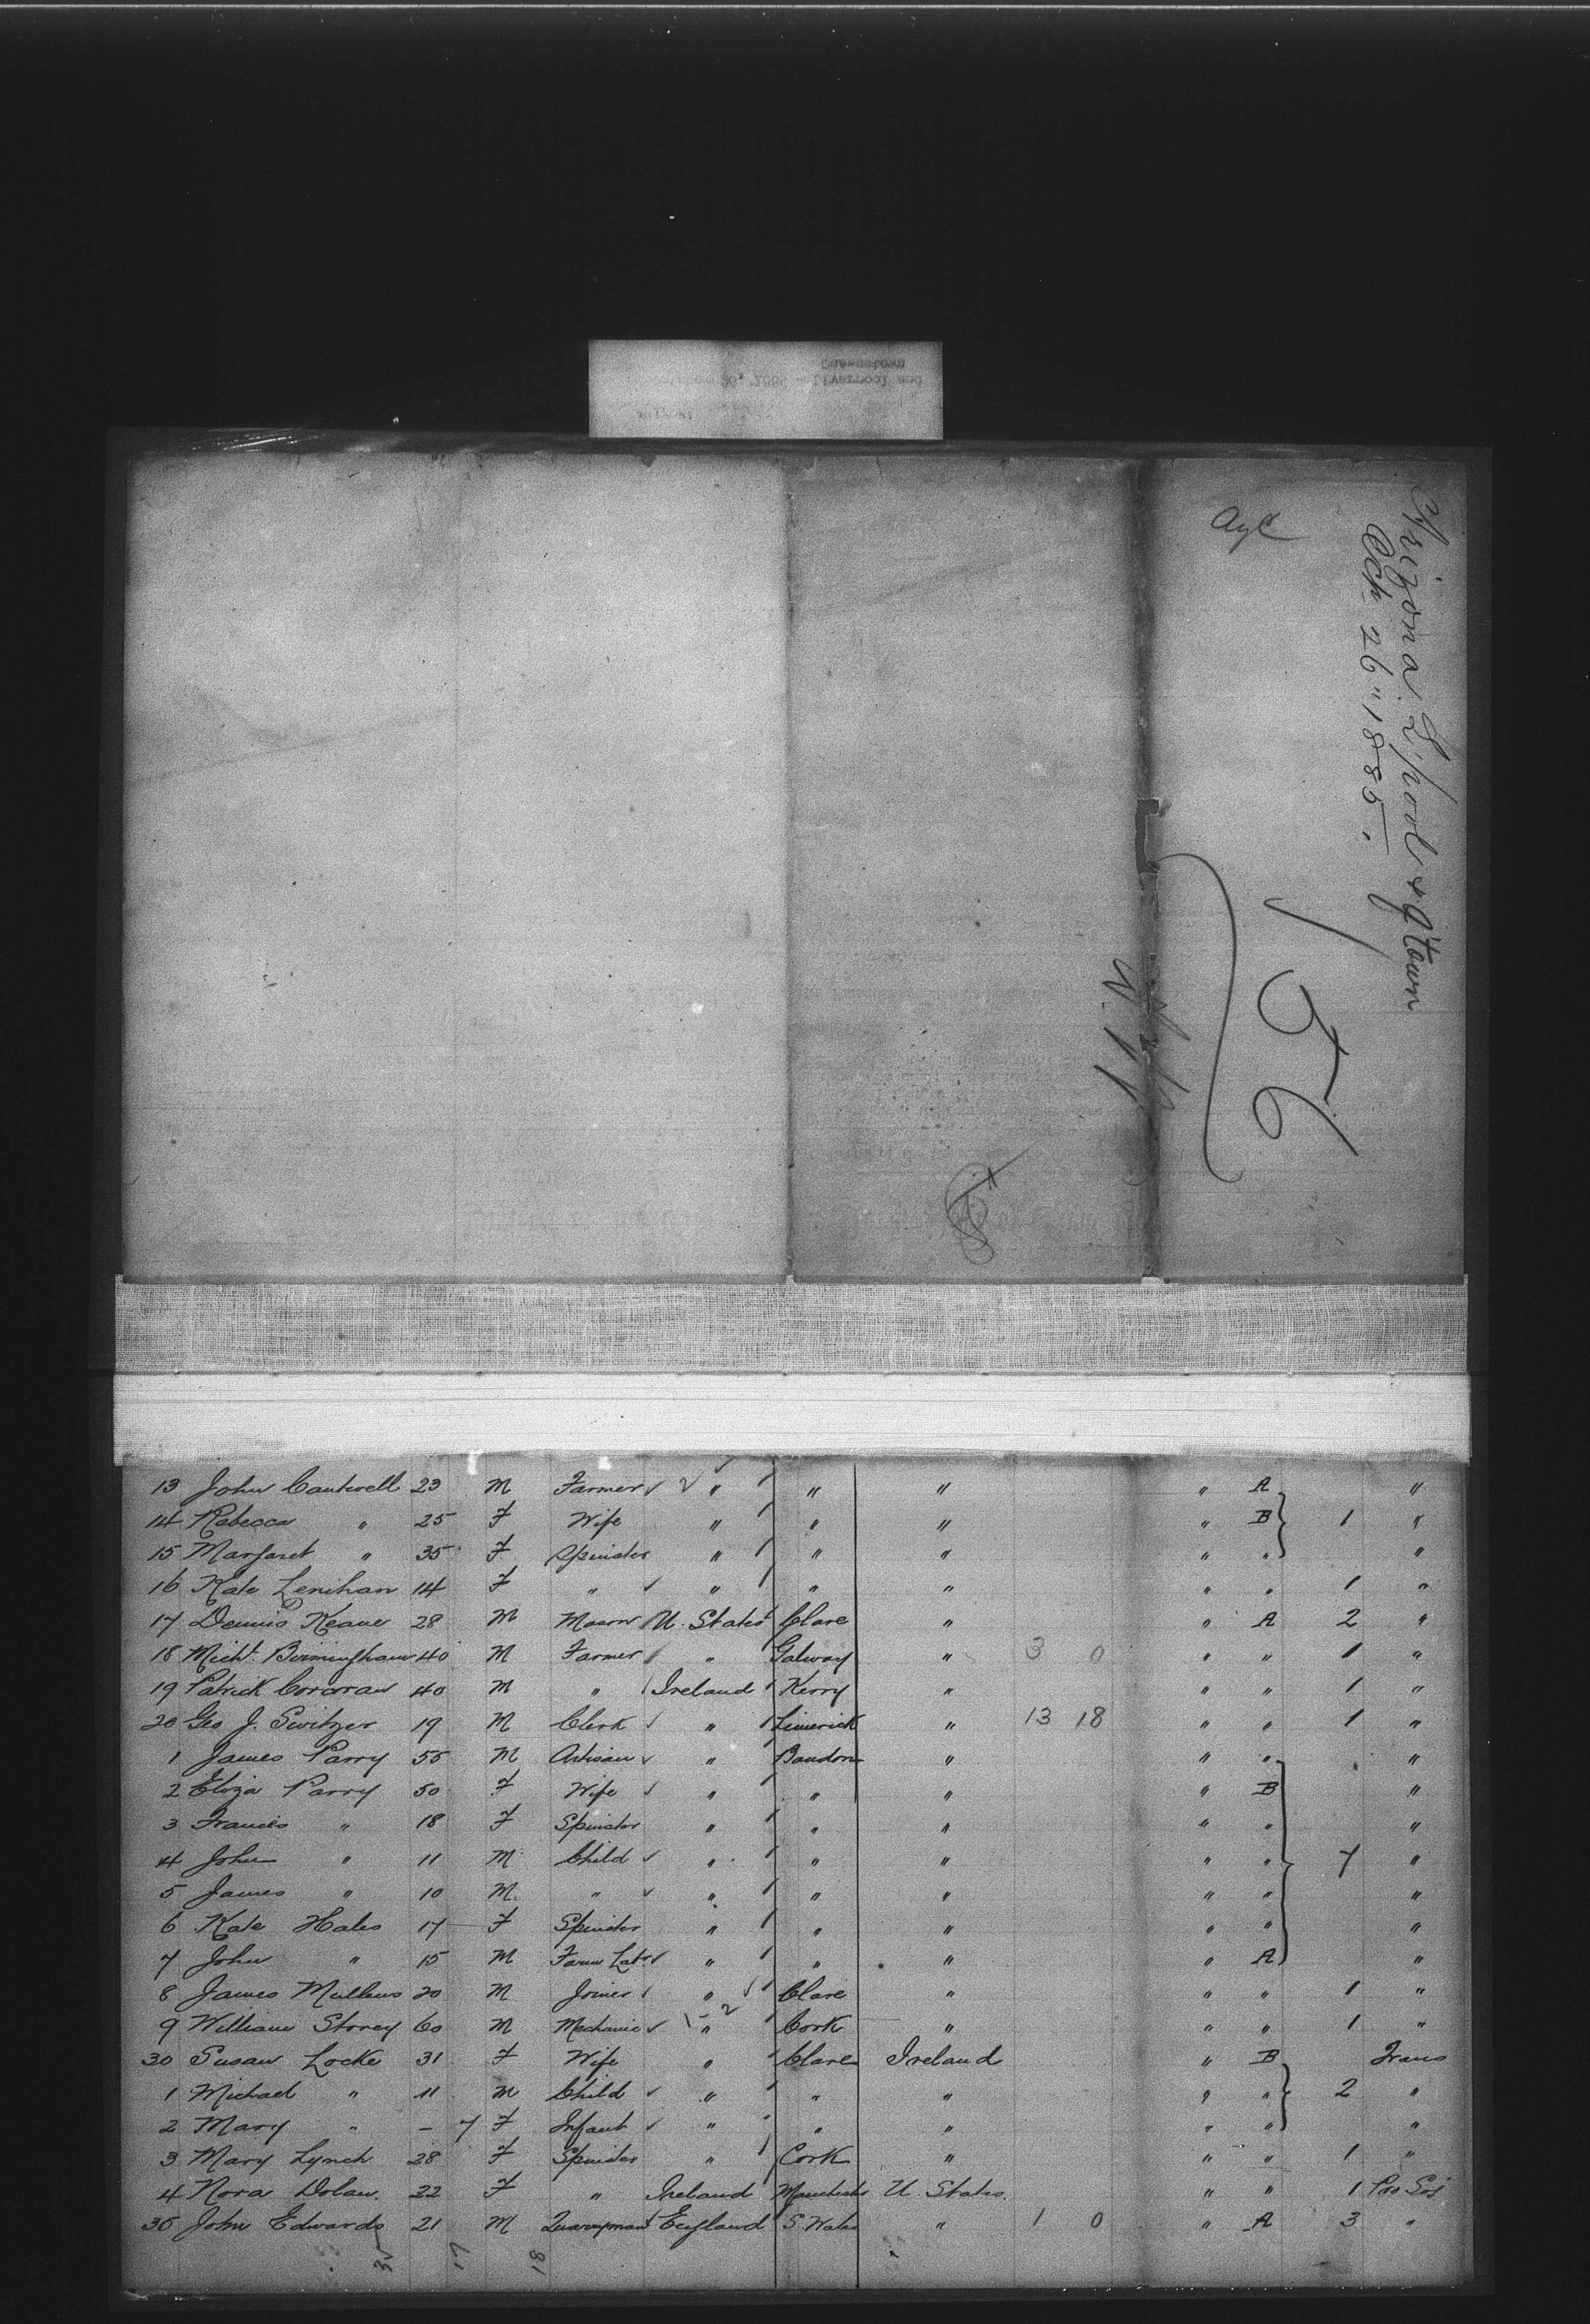 Arizona L'pool & Q'town
Oct 26" 1885.
156
W.H.
13 John Cantwell 23 M Farmer " " " " A "
14 Rebecca " 25 F Wife " " " " B 1 "
15 Margaret " 35 F Spinster " " " " " "
16 Kate Lenihan 14 F " " " " " " 1 "
17 Dennis Keane 28 M Mason U. States Clare " " A 2 "
18 Michl. Birmingham 40 M Farmer " Galway " 3 0 " " 1 "
19 Patrick Corcoran 40 M " Ireland Kerry " " " 1 "
20 Geo J. Switzer 19 M Clerk " Limerick " 13 18 " " 1 "
1 James Parry 55 M Artisan " Bandon " " " "
2 Eliza Parry 50 F Wife " " " " B "
3 Frances " 18 F Spinster " " " " " "
4 John " 11 M Child " " " " " 7 "
5 James " 10 M " " " " " " "
6 Kate Hales 17 F Spinster " " " " " "
7 John " 15 M Farm Labr " " " " A "
8 James Mullins 20 M Joiner " Clare " " " 1 "
9 William Storey 60 M Mechanic " Cork " " " 1 "
30 Susan Locke 31 F Wife " Clare Ireland " B Trans
1 Michael " 11 M Child " " " " " 2 "
2 Mary " - 7 F Infant " " " " " "
3 Mary Lynch 28 F Spinster " Cork " " " 1 "
4 Nora Dolan. 22 F " Ireland Manchester U. States. " " 1 Pro Soj
35 John Edwards 21 M Quarryman England S. Wales " 1 0 " A 3 "
17 18